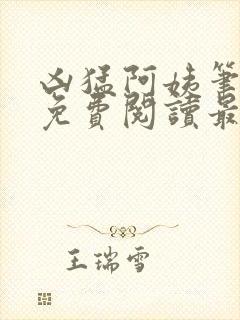 凶猛阿姨筆
免費閱讀最
王瑞雪